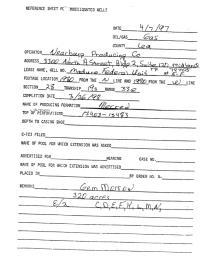 REFERENCE SHEET FOR UNDESIGNATED WELLS
DATE 4/7/97
OIL/GAS Gas
COUNTY Lea
OPERATOR Nearburg Producing Co
ADDRESS 3300 North A Street, Bldg 2, Suite 120, Midland
LEASE NAME, WELL NO. Minuteman Federal Unit
FOOTAGE LOCATION 1980 FROM THE N LINE AND 1980 FROM THE W LINE
SECTION 28 TOWNSHIP 19s RANGE 33e
COMPLETION DATE
NAME OF PRODUCING FORMATION Morrow
TOP OF PERFORATIONS 13403-13483
DEPTH TO CASING SHOE
C-123 FILED
NAME OF POOL FOR WHICH EXTENSION WAS ASKED
ADVERTISED FOR HEARING CASE NO.
NAME OF POOL FOR WHICH EXTENSION WAS ADVERTISED
PLACED IN BY ORDER NO. R-
REMARKS Gem Morrow
320 acres
C, D, E, F, K, L, M, N,